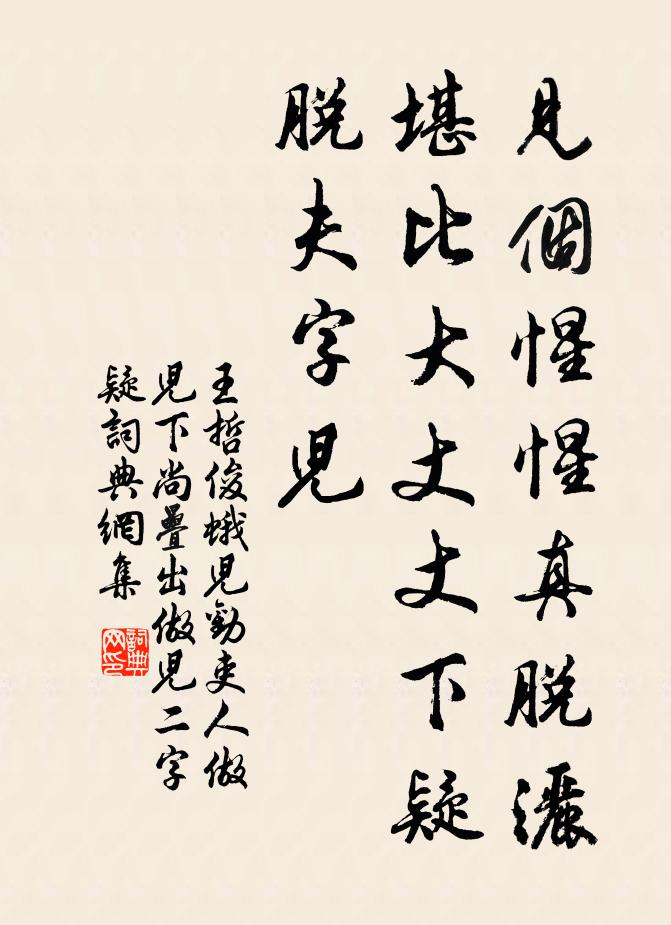 見個惺惺真脫灑
堪比大丈丈下疑
脫夫字兒
王哲俊蛾兒勸吏人做
兒下尚疊出做兒二字
疑詞典網集
詞典網印